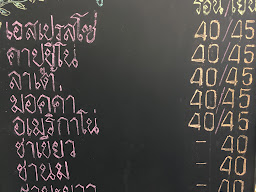 ร้อน/เย็น
เอสเปรสโซ่ 40/45
คาปูชิโน่ 40/45
ลาเต้ 40/45
มอคค่า 40/45
อเมริกาโน่ 40/45
ชาเขียว - 40
ชานม - 40